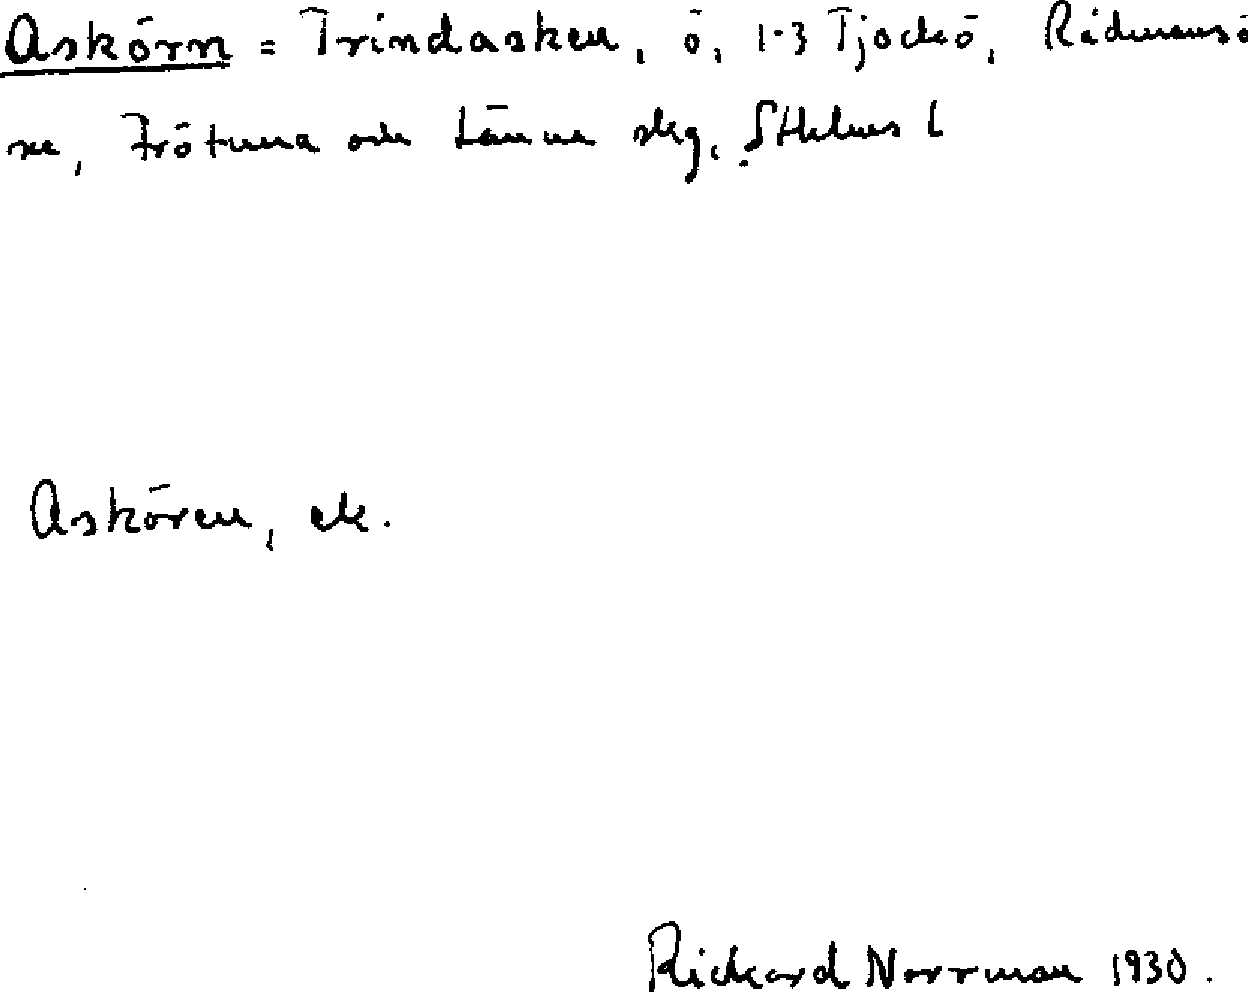 Askörn = Trindasken, ö, 1.3 Tjockö, Rådmansö
sn, Frötuna och Länna skg, Sthlms l
Askören, ek.
Rickard Norrman 1930.